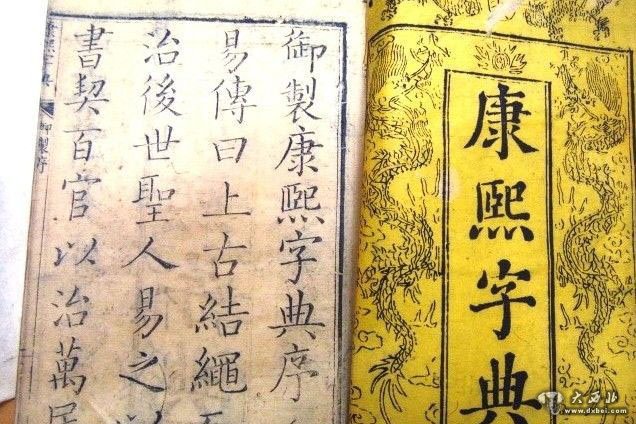 康熙字典
御製康熙字典序
易傳曰上古結繩而
治後世聖人易之以
書契百官以治萬民
康熙字典 御製序
大西北
www.dxbei.com